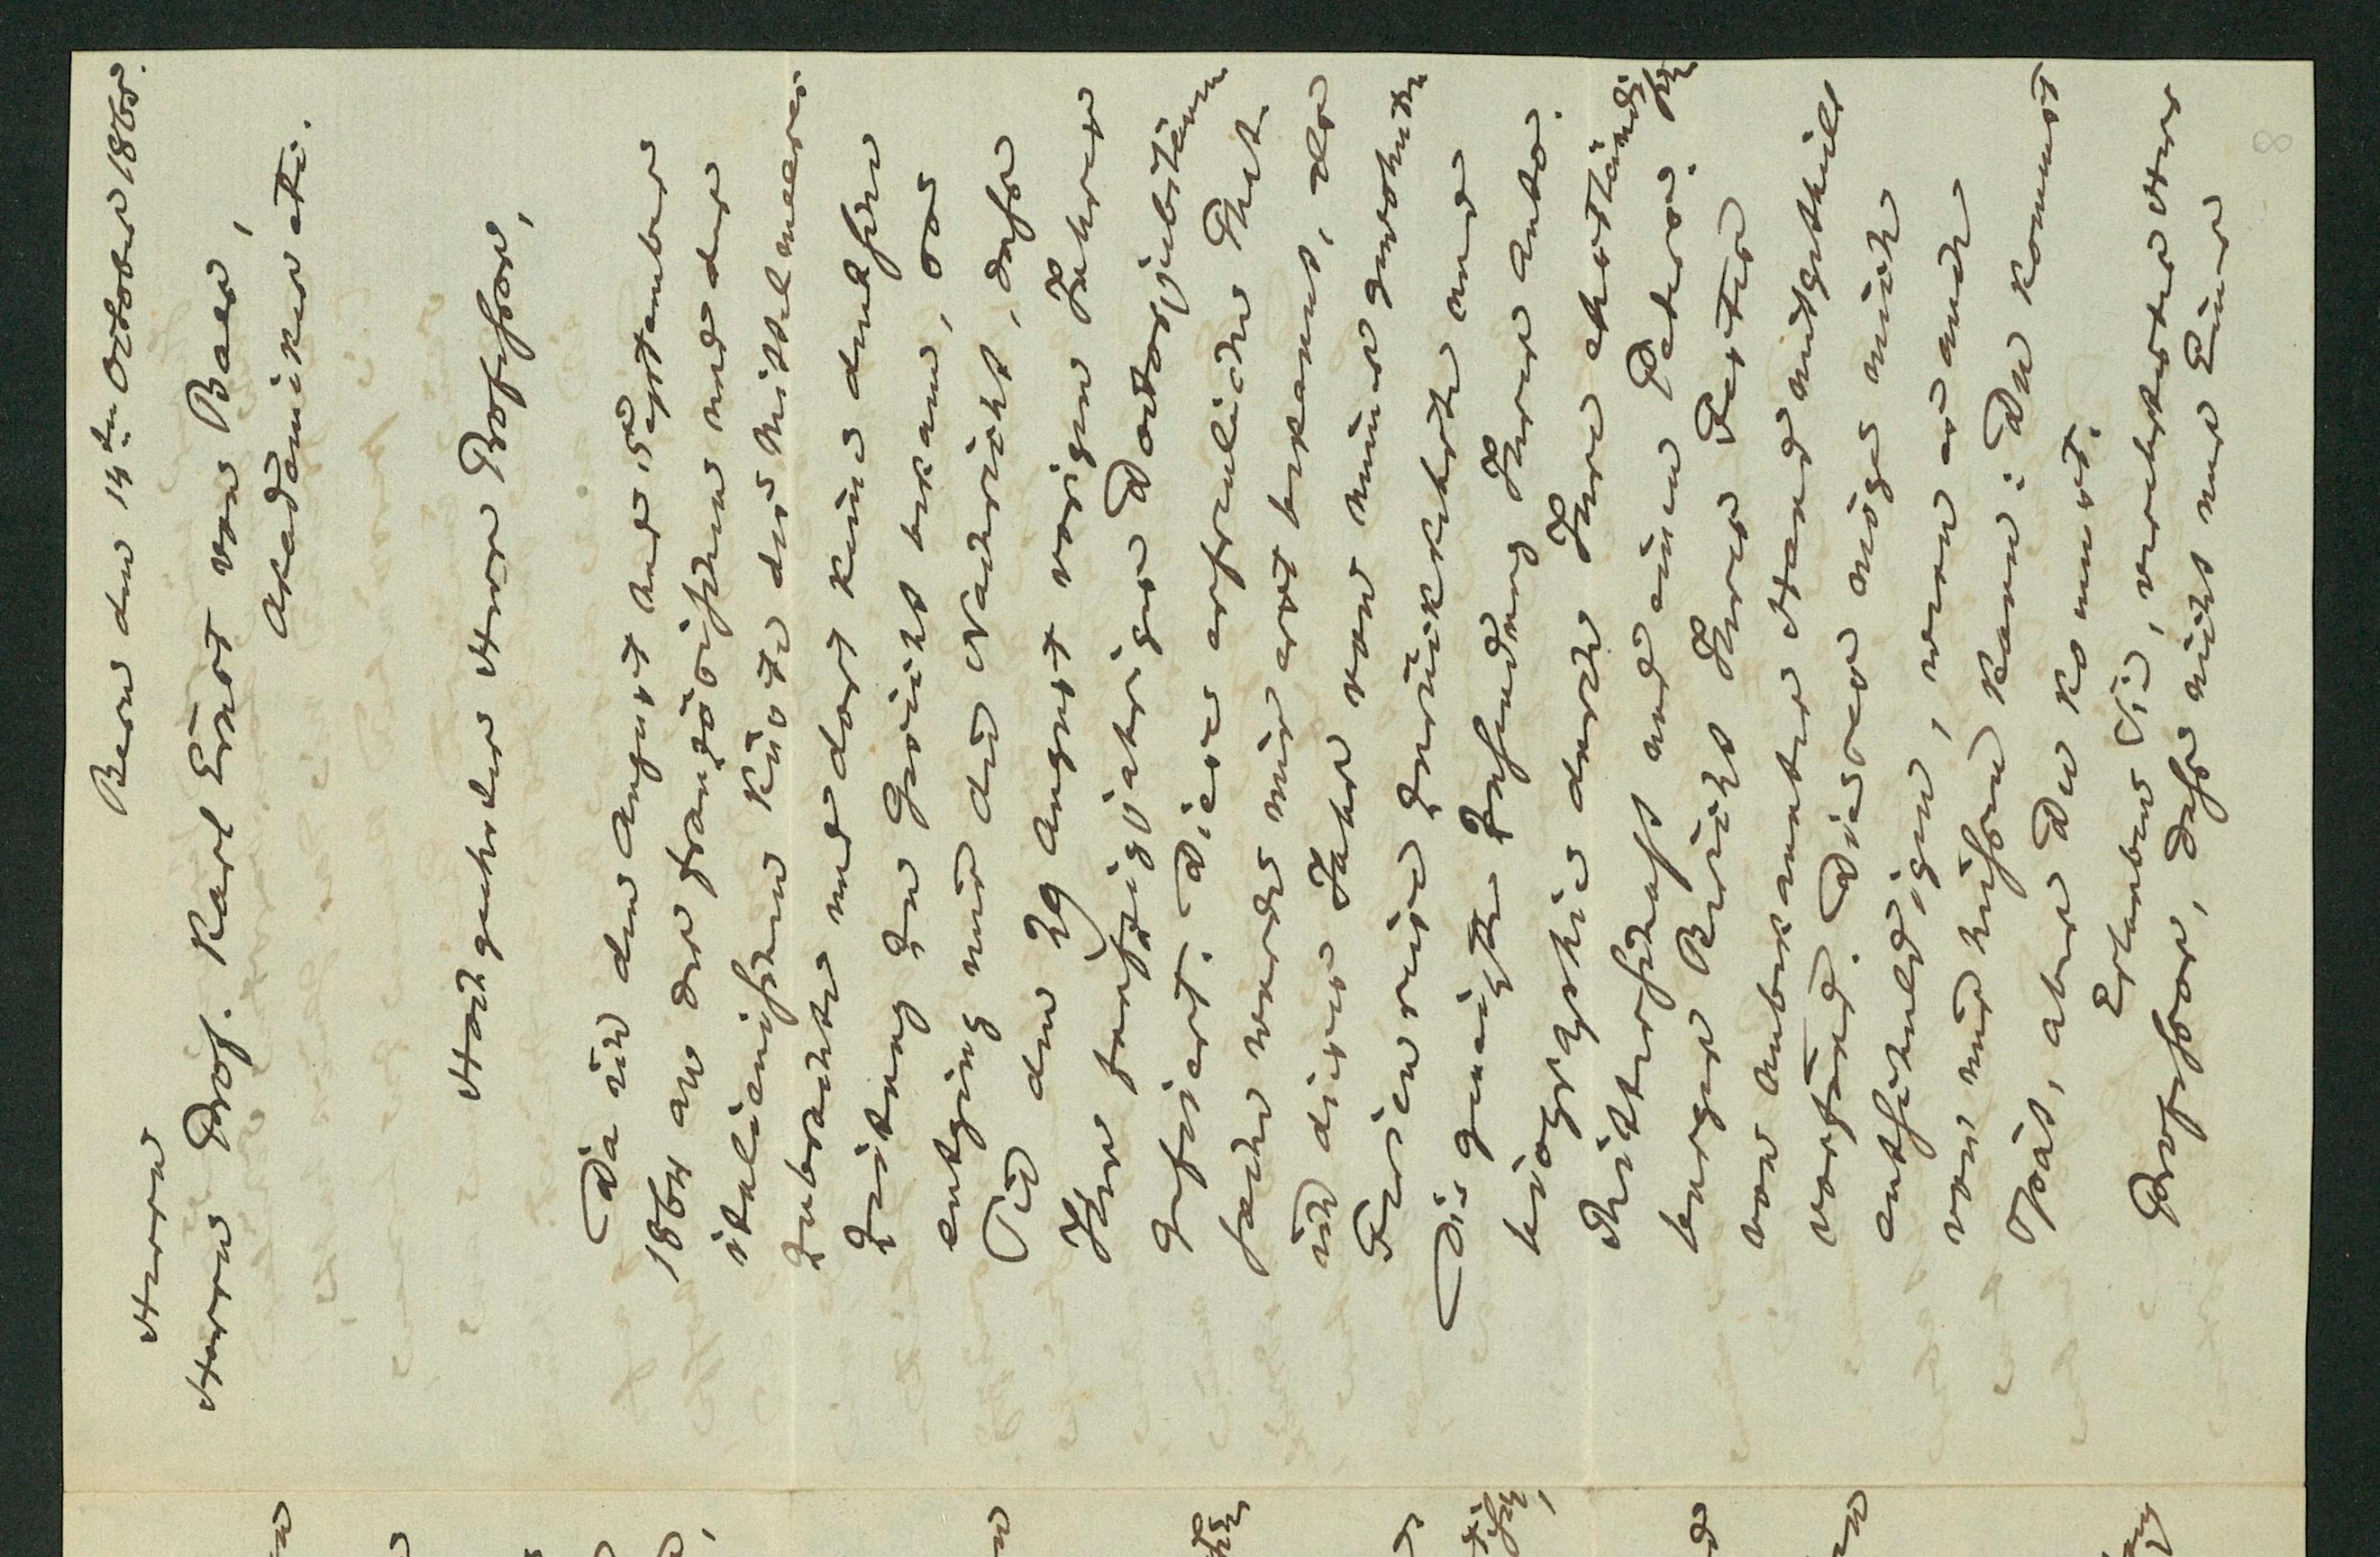 Bern den 14ten October 1865.
Herrn
Herrn Prof. Karl Ernst von Baer,
Akademiker etc.
Hochgeehrter Herr Professor,
Da ich den August und September
1864 an der französischen und der
italienischen Küste des Mittelmeeres
zubrachte und dort keine deutschen
Zeitung zu Gesicht bekam, so
entging mir die Nachricht, dass
Sie den 29 August vorigen Jahres
Ihr funfzigjähriges Doctorjubiläum
gefeiert. Diese erfreuliche That-
sache wurde mir erst bekannt, als
ich dieses Jahr von meiner gewohnten
Ferienreise zurückkehrte und
die gütige Zusendung Ihrer Auto-
biographie durch Ihre ehstländische
Ritterschaft und einen Peters-
burger Bericht Ihres Festes
von unbekannter Hand mitgetheilt
vorfand. Dieses möge mich
entschuldigen, wenn es auch
von mir heissen kann: Du kommst
spät, aber Du kommst.
Erlauben Sie, verehrtester Herr
Professor, dass nicht nur Einer
8